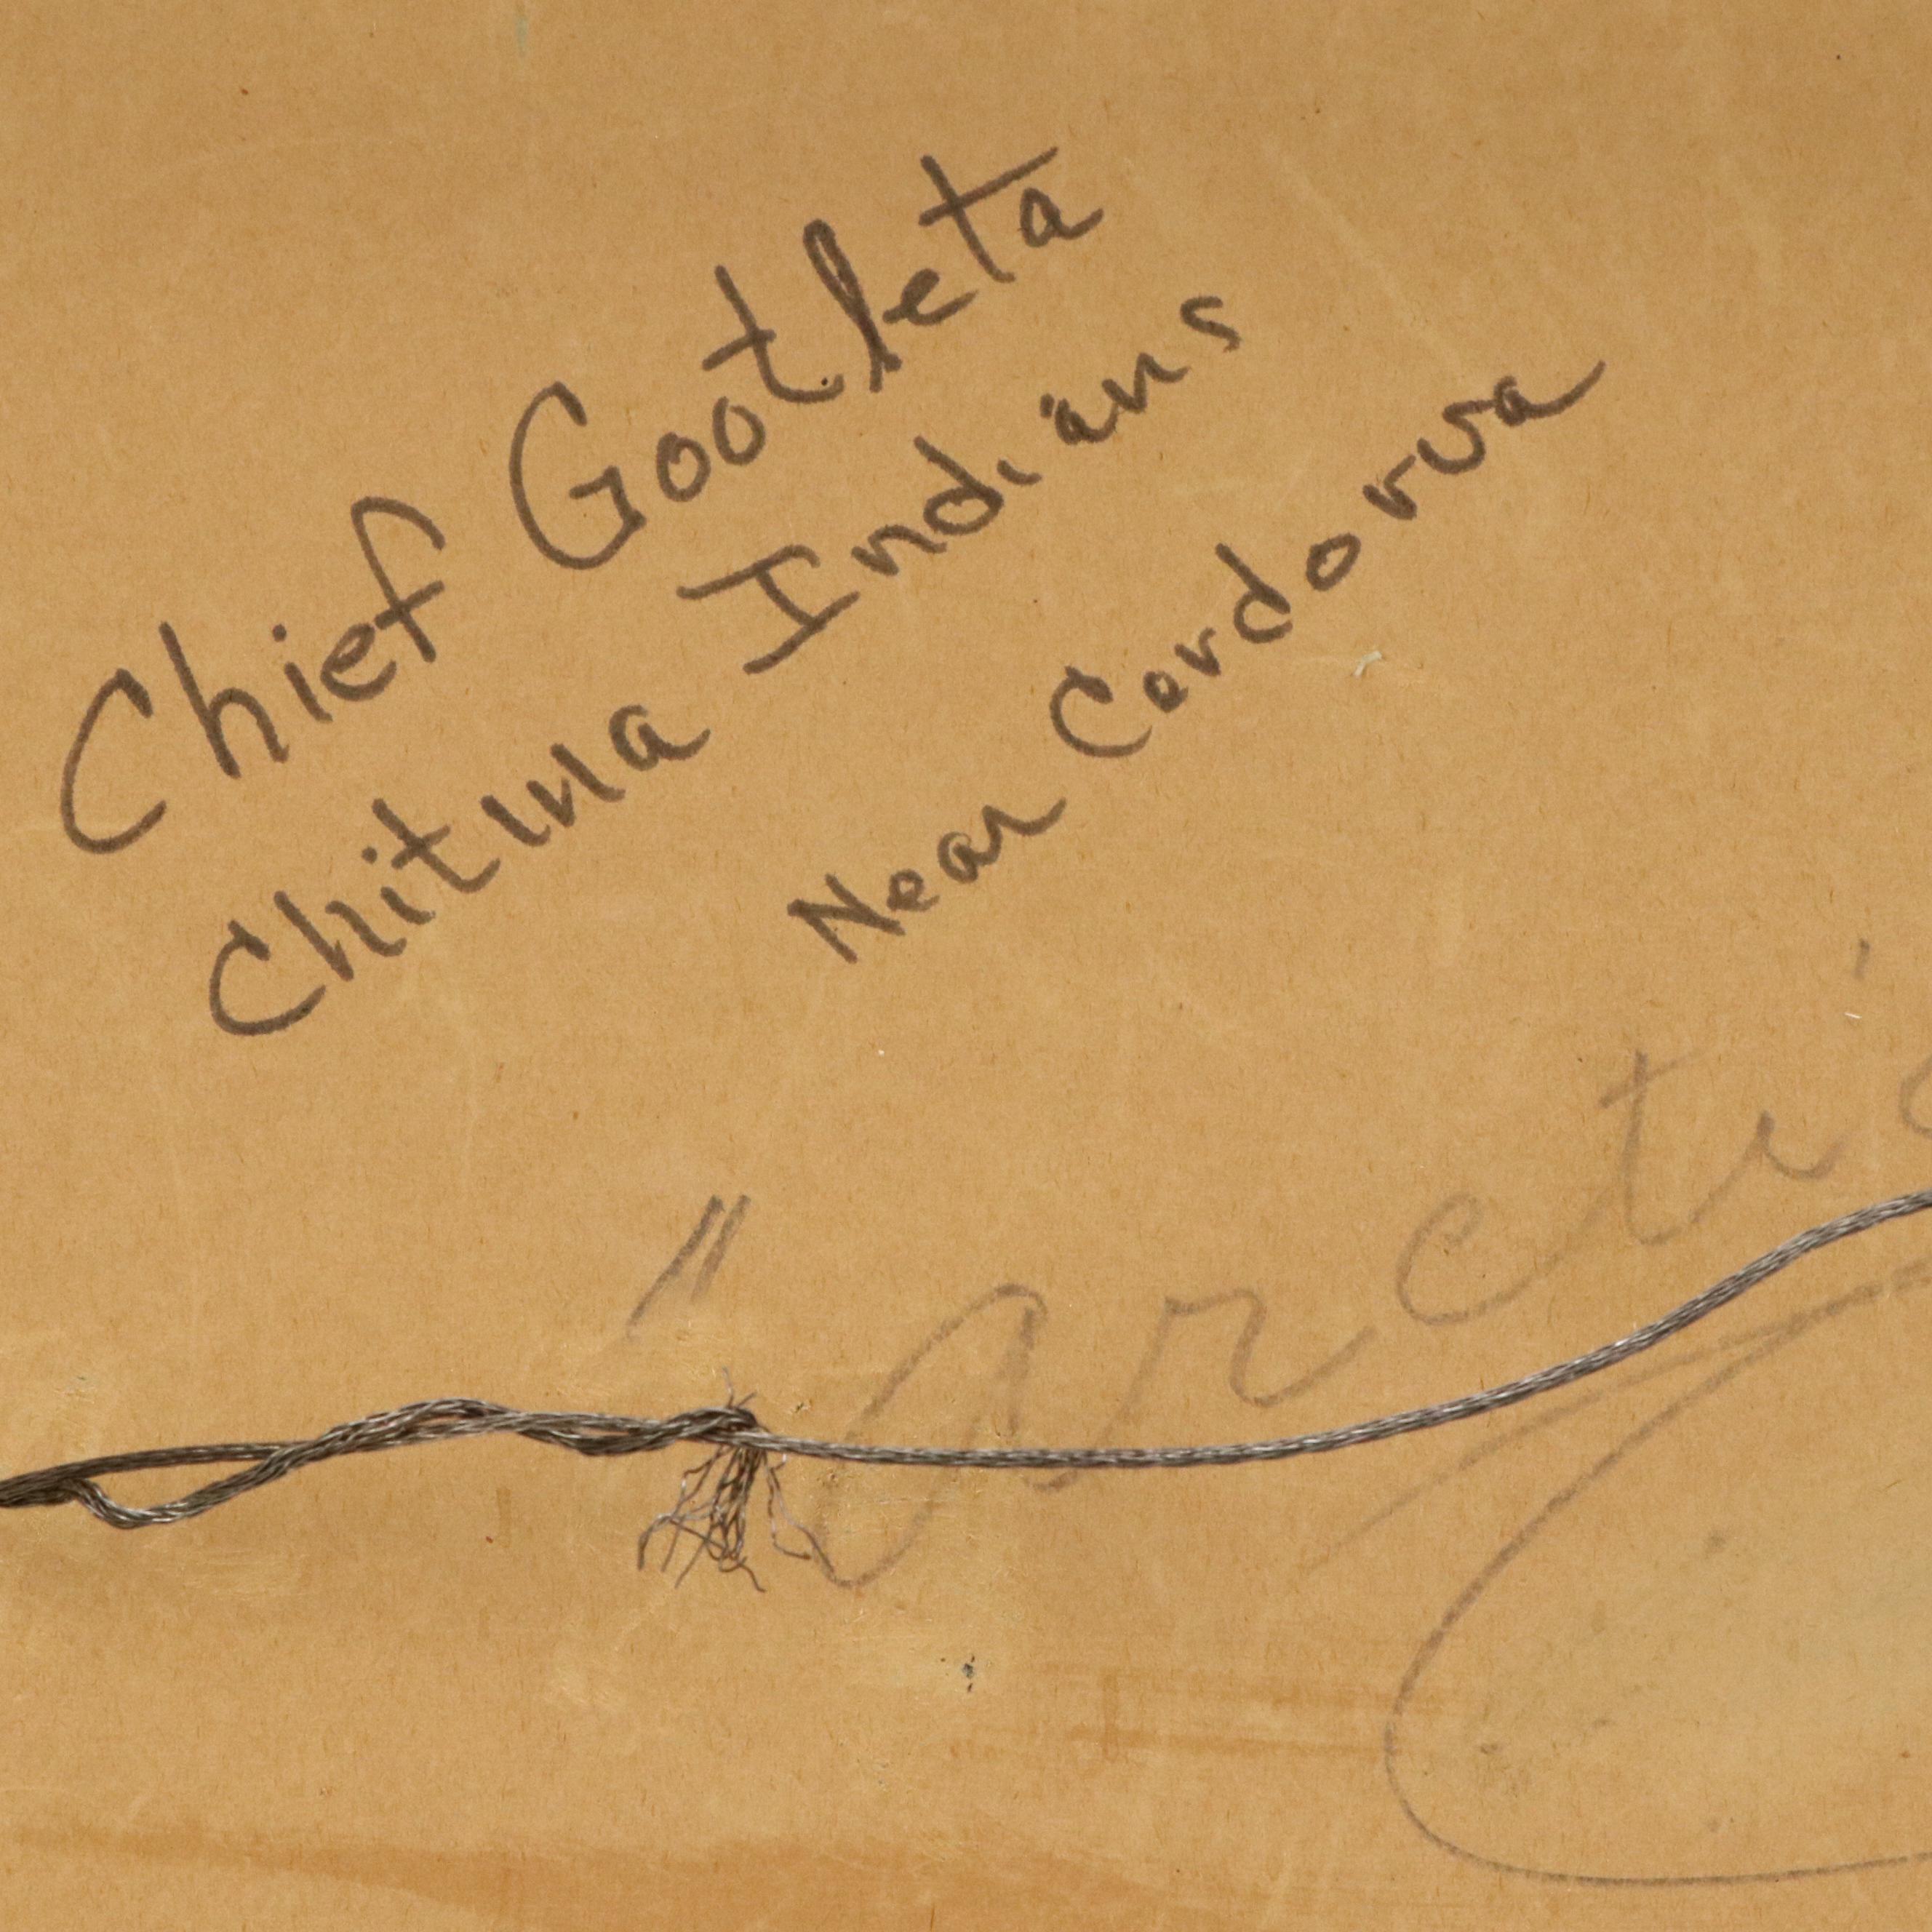 Chief Gootleta
Chitina Indians
Near Cordorva
"Arctic